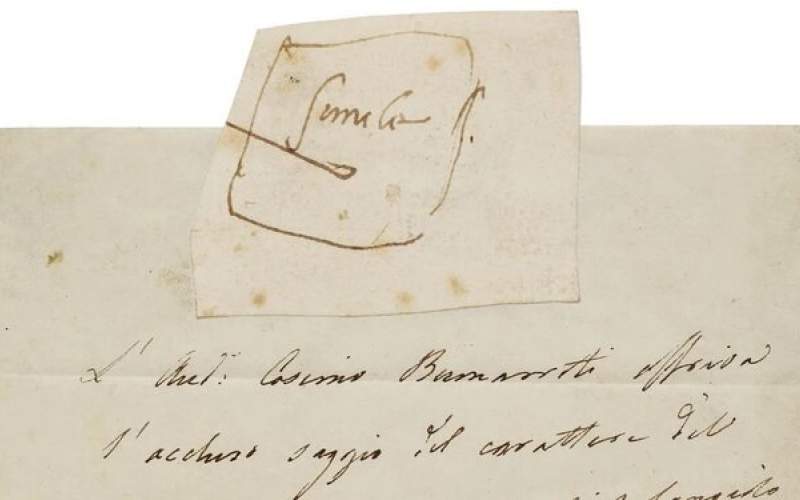 simile
L' Aud: Cosimo Buonarroti offriva
l'accluso saggio del carattere del